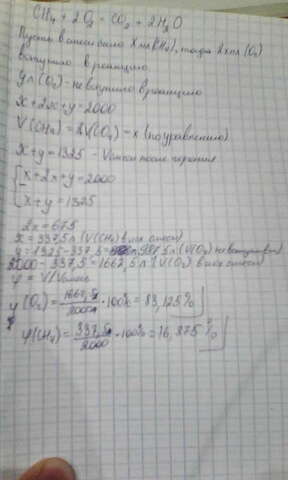 CH₄ + 2O₂ = CO₂ + 2H₂O
Пусть в смеси было x л (CH₄), тогда 2x л (O₂)
вступило в реакцию
y л (O₂) - не вступило в реакцию
x + 2x + y = 2000
V(CH₄) = V(CO₂) - x (по уравнению)
x + y = 1325 - V смеси после горения
x + 2x + y = 2000
x + y = 1325
2x = 675
x = 337,5 л (V(CH₄) в исх смеси)
y = 1325 - 337,5 = 987,5 л (V(O₂) не вступившего)
2000 - 337,5 = 1662,5 л (V(O₂) в исх смеси)
φ = V/Vсмеси
φ(O₂) = 1662,5/2000 · 100% = 83,125%
φ(CH₄) = 337,5/2000 · 100% = 16,875%